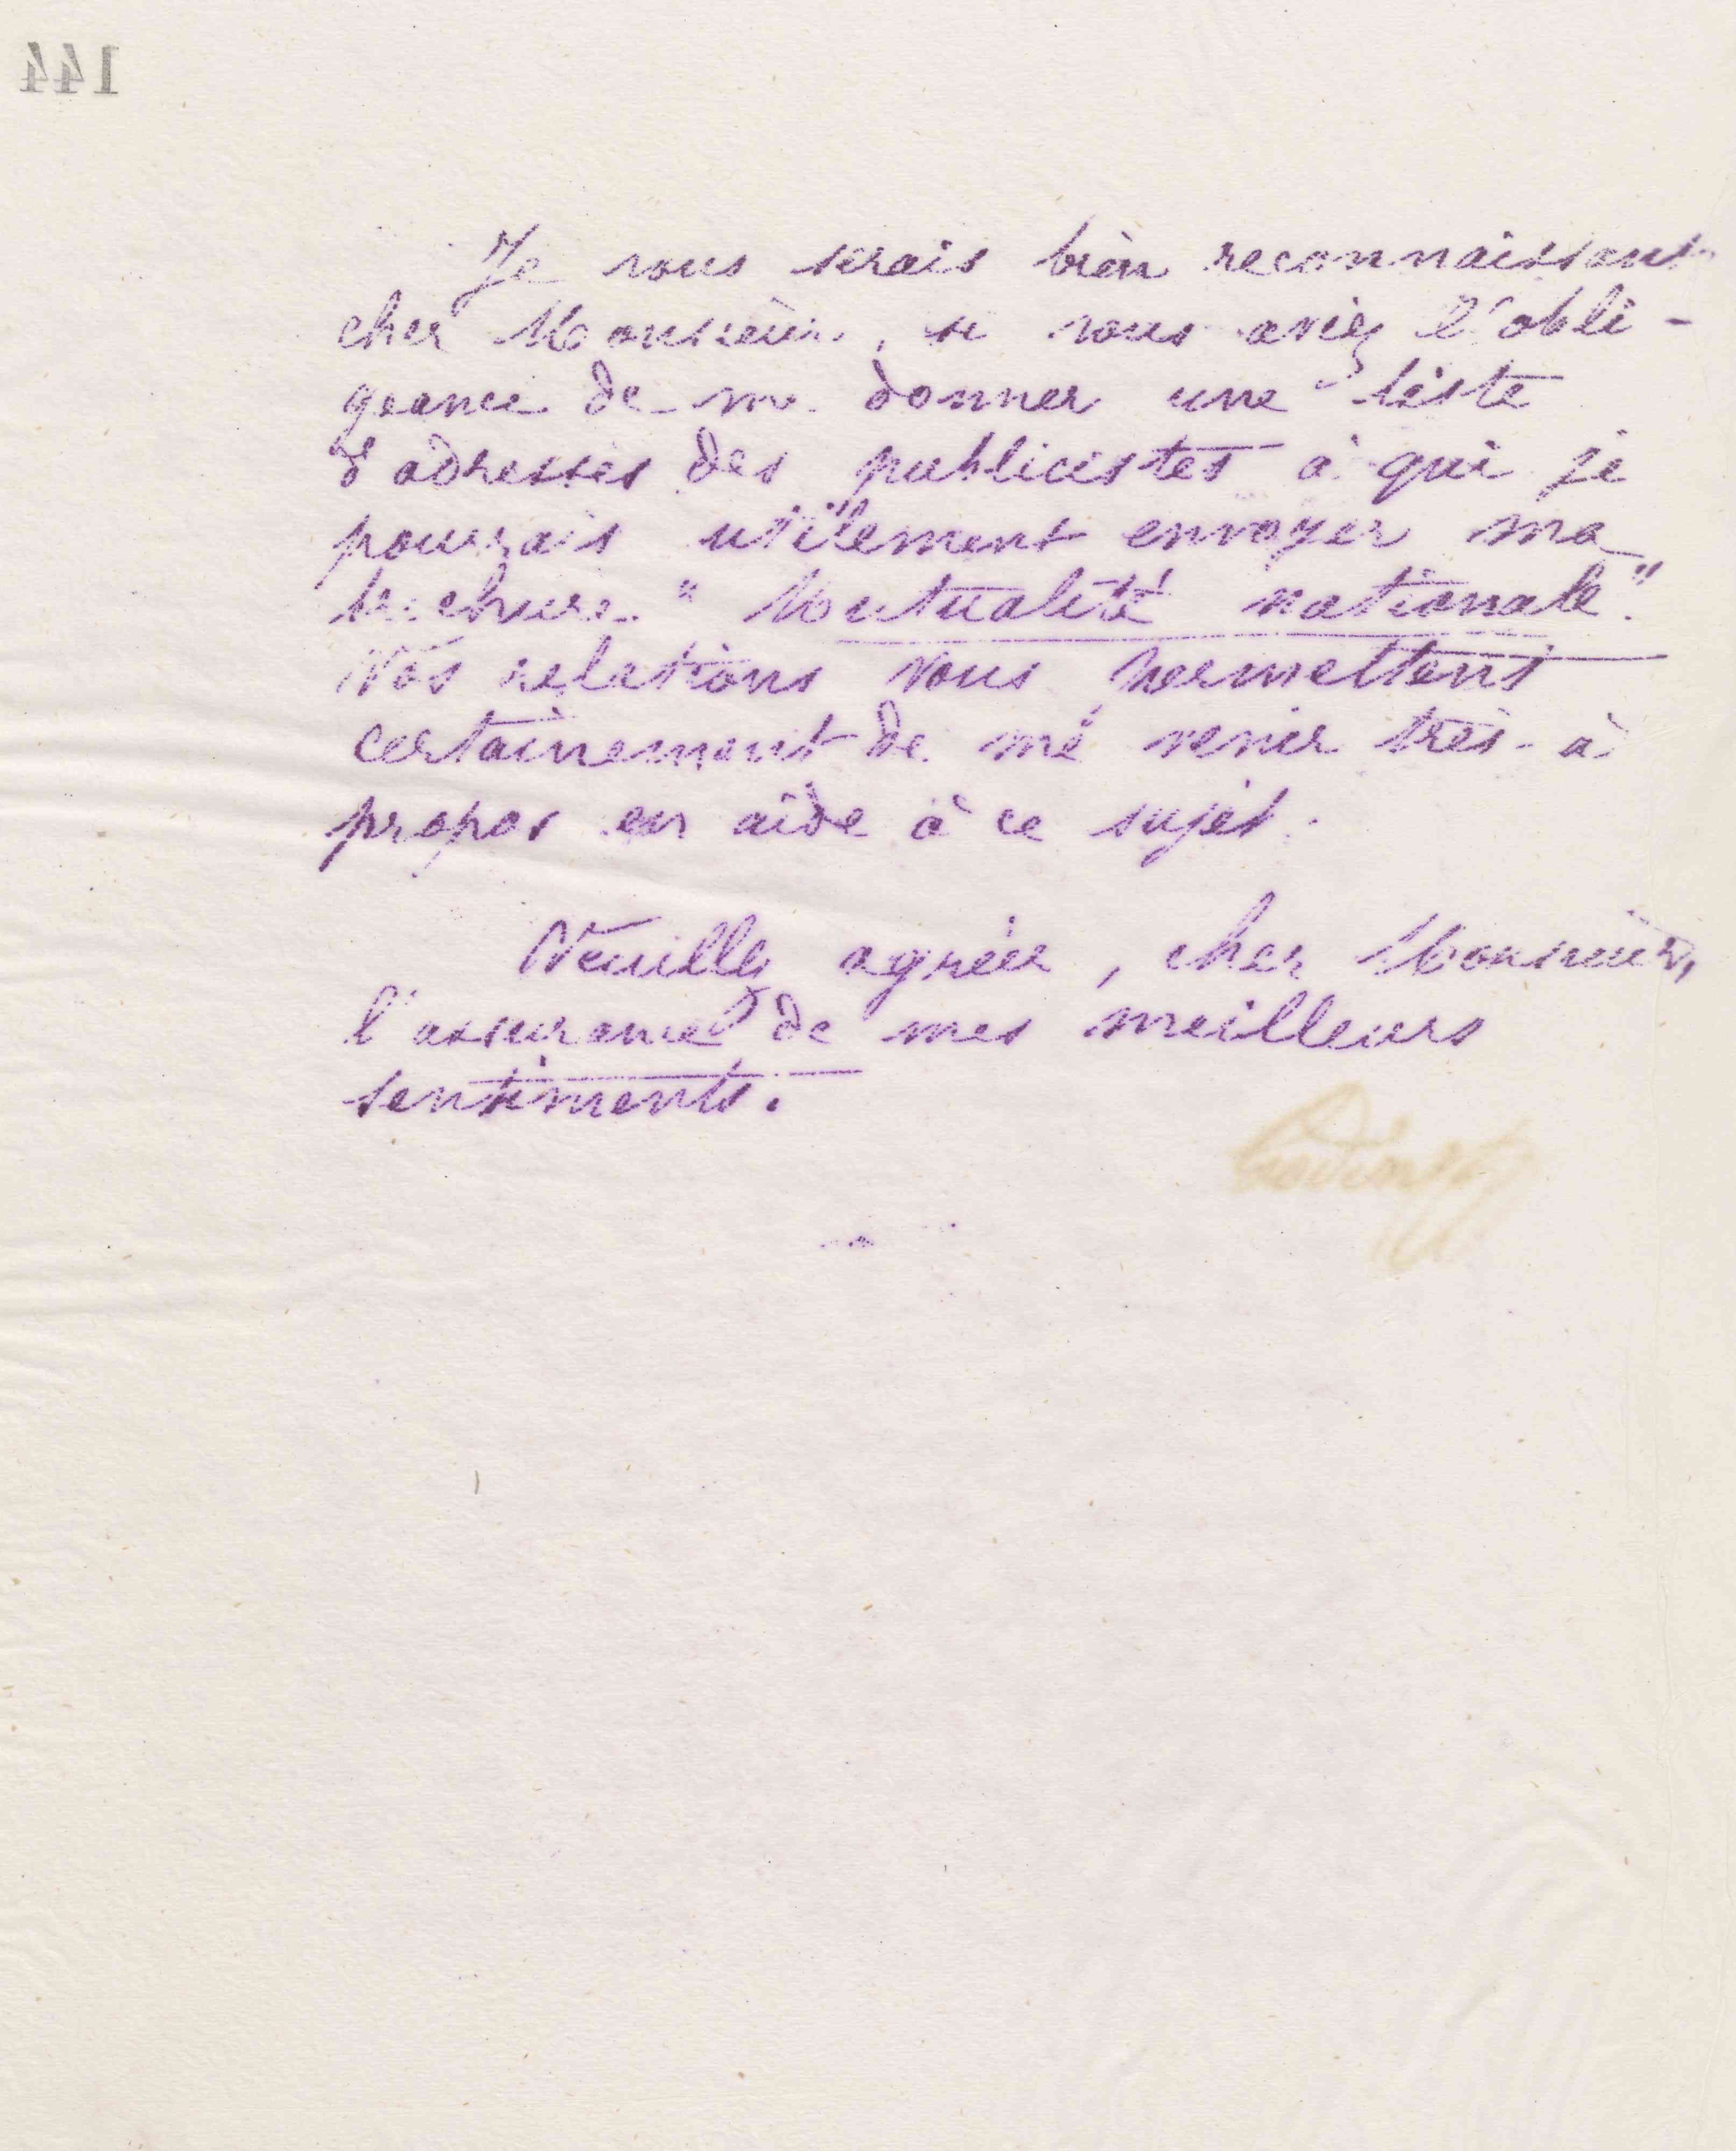 144
Je vous serais bien reconnaissant
cher Monsieur, si vous aviez l'obli-
geance de me donner une liste
d'adresses des publicistes à qui je
pourrais utilement envoyer ma
brochure "Mutualité nationale".
Vos relations vous permettent
certainement de me venir très à
propos en aide à ce sujet.
Veuillez agréer, cher Monsieur,
l'assurance de mes meilleurs
sentiments.
Godin